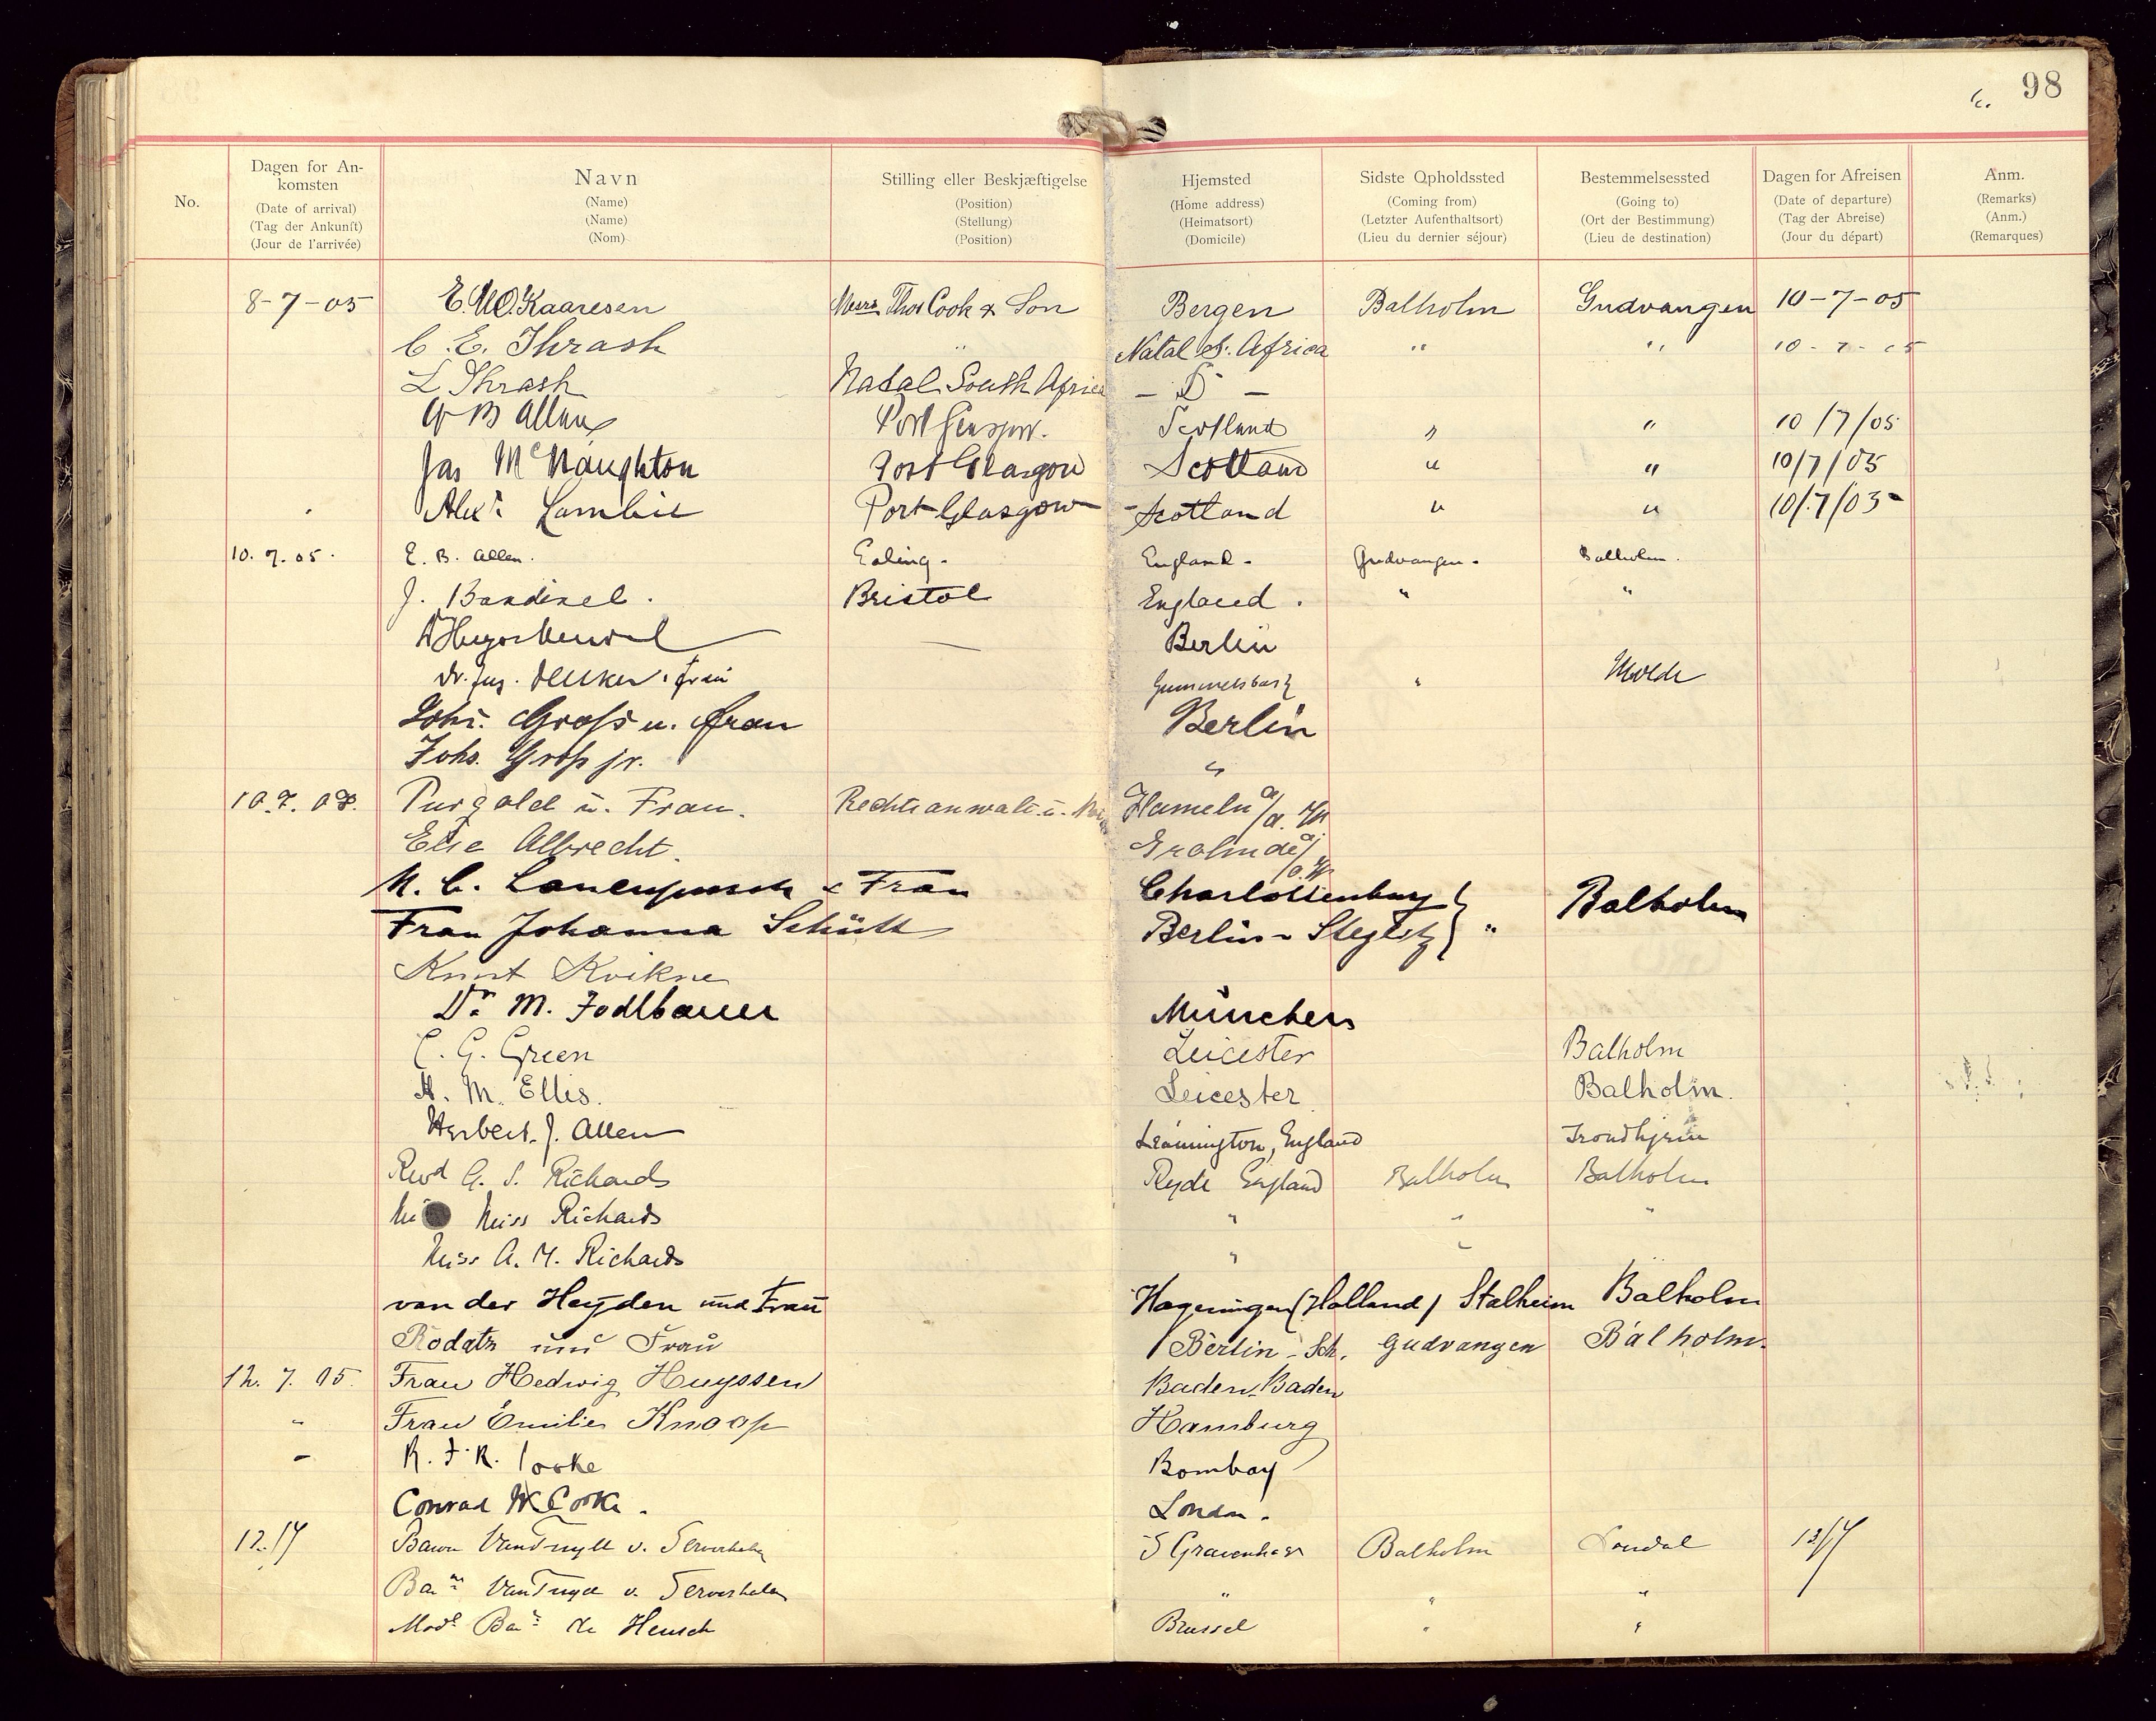 98
No.
Dagen for An-
komsten
(Date of arrival)
(Tag der Ankunft)
(Jour de l'arrivée)
Navn
(Name)
(Name)
(Nom)
Stilling eller Beskjæftigelse
(Position)
(Stellung)
(Position)
Hjemsted
(Home address)
(Heimatsort)
(Domicile)
Sidste Opholdssted
(Coming from)
(Letzter Aufenthaltsort)
(Lieu du dernier séjour)
Bestemmelsessted
(Going to)
(Ort der Bestimmung)
(Lieu de destination)
Dagen for Afreisen
(Date of departure)
(Tag der Abreise)
(Jour du départ)
Anm.
(Remarks)
(Anm.)
(Remarques)
8-7-05 Kaaresen Messrs Thos Cook & Son Bergen Balholm Gudvangen 10-7-05
C. E. Thrash " Natal S. Africa " " 10-7-05
L Thrash Natal South Africa - D -
B Allan Port Glasgow. Scotland " " 10/7/05
Jas McNaughton Port Glasgow Scotland " " 10/7/05
Alexr Lambie Port-Glasgow Scotland " " 10/7/05
10.7.05. E. B. Allen. Ealing. England. Gudvangen. Balholm.
J. Bandinel. Bristol England. " "
Berlin
Dr. jur. Frau " Molde
Johs. Groß u. Frau Berlin
Johs. Groß jr. "
10.7.05. Purgold u. Frau. Rechtsanwalt u. Hameln a/
Else Albrecht.
M. C. & Frau Charlottenburg } Balholm
Frau Johanna Schütt Berlin-Steglitz } "
Knut Kvikne
Dr. M. Jodlbauer München
C. G. Green Leicester Balholm
A. M. Ellis. Leicester Balholm.
Herbert. J. Allen Leamington, England Trondhjem
Revd G. S. Richards Ryde England Balholm Balholm
Miss Richards " " "
Miss A. M. Richards " "
van der Heyden und Frau (Holland) Stalheim Balholm
Rodatz und Frau Berlin-Sch. Gudvangen Balholm.
12. 7. 05. Frau Hedwig Huyssen Baden-Baden
" Frau Emilie Knoop Hamburg
" R. F. R. Cooke Bombay
Conrad W Cooke. London.
12/7 Baron Van Tuyll v. Serooskerken S Gravenhage Balholm 13/7
Bane Van Tuyll v. Serooskerken " " "
Madle Bane de Heusch Brussel " "